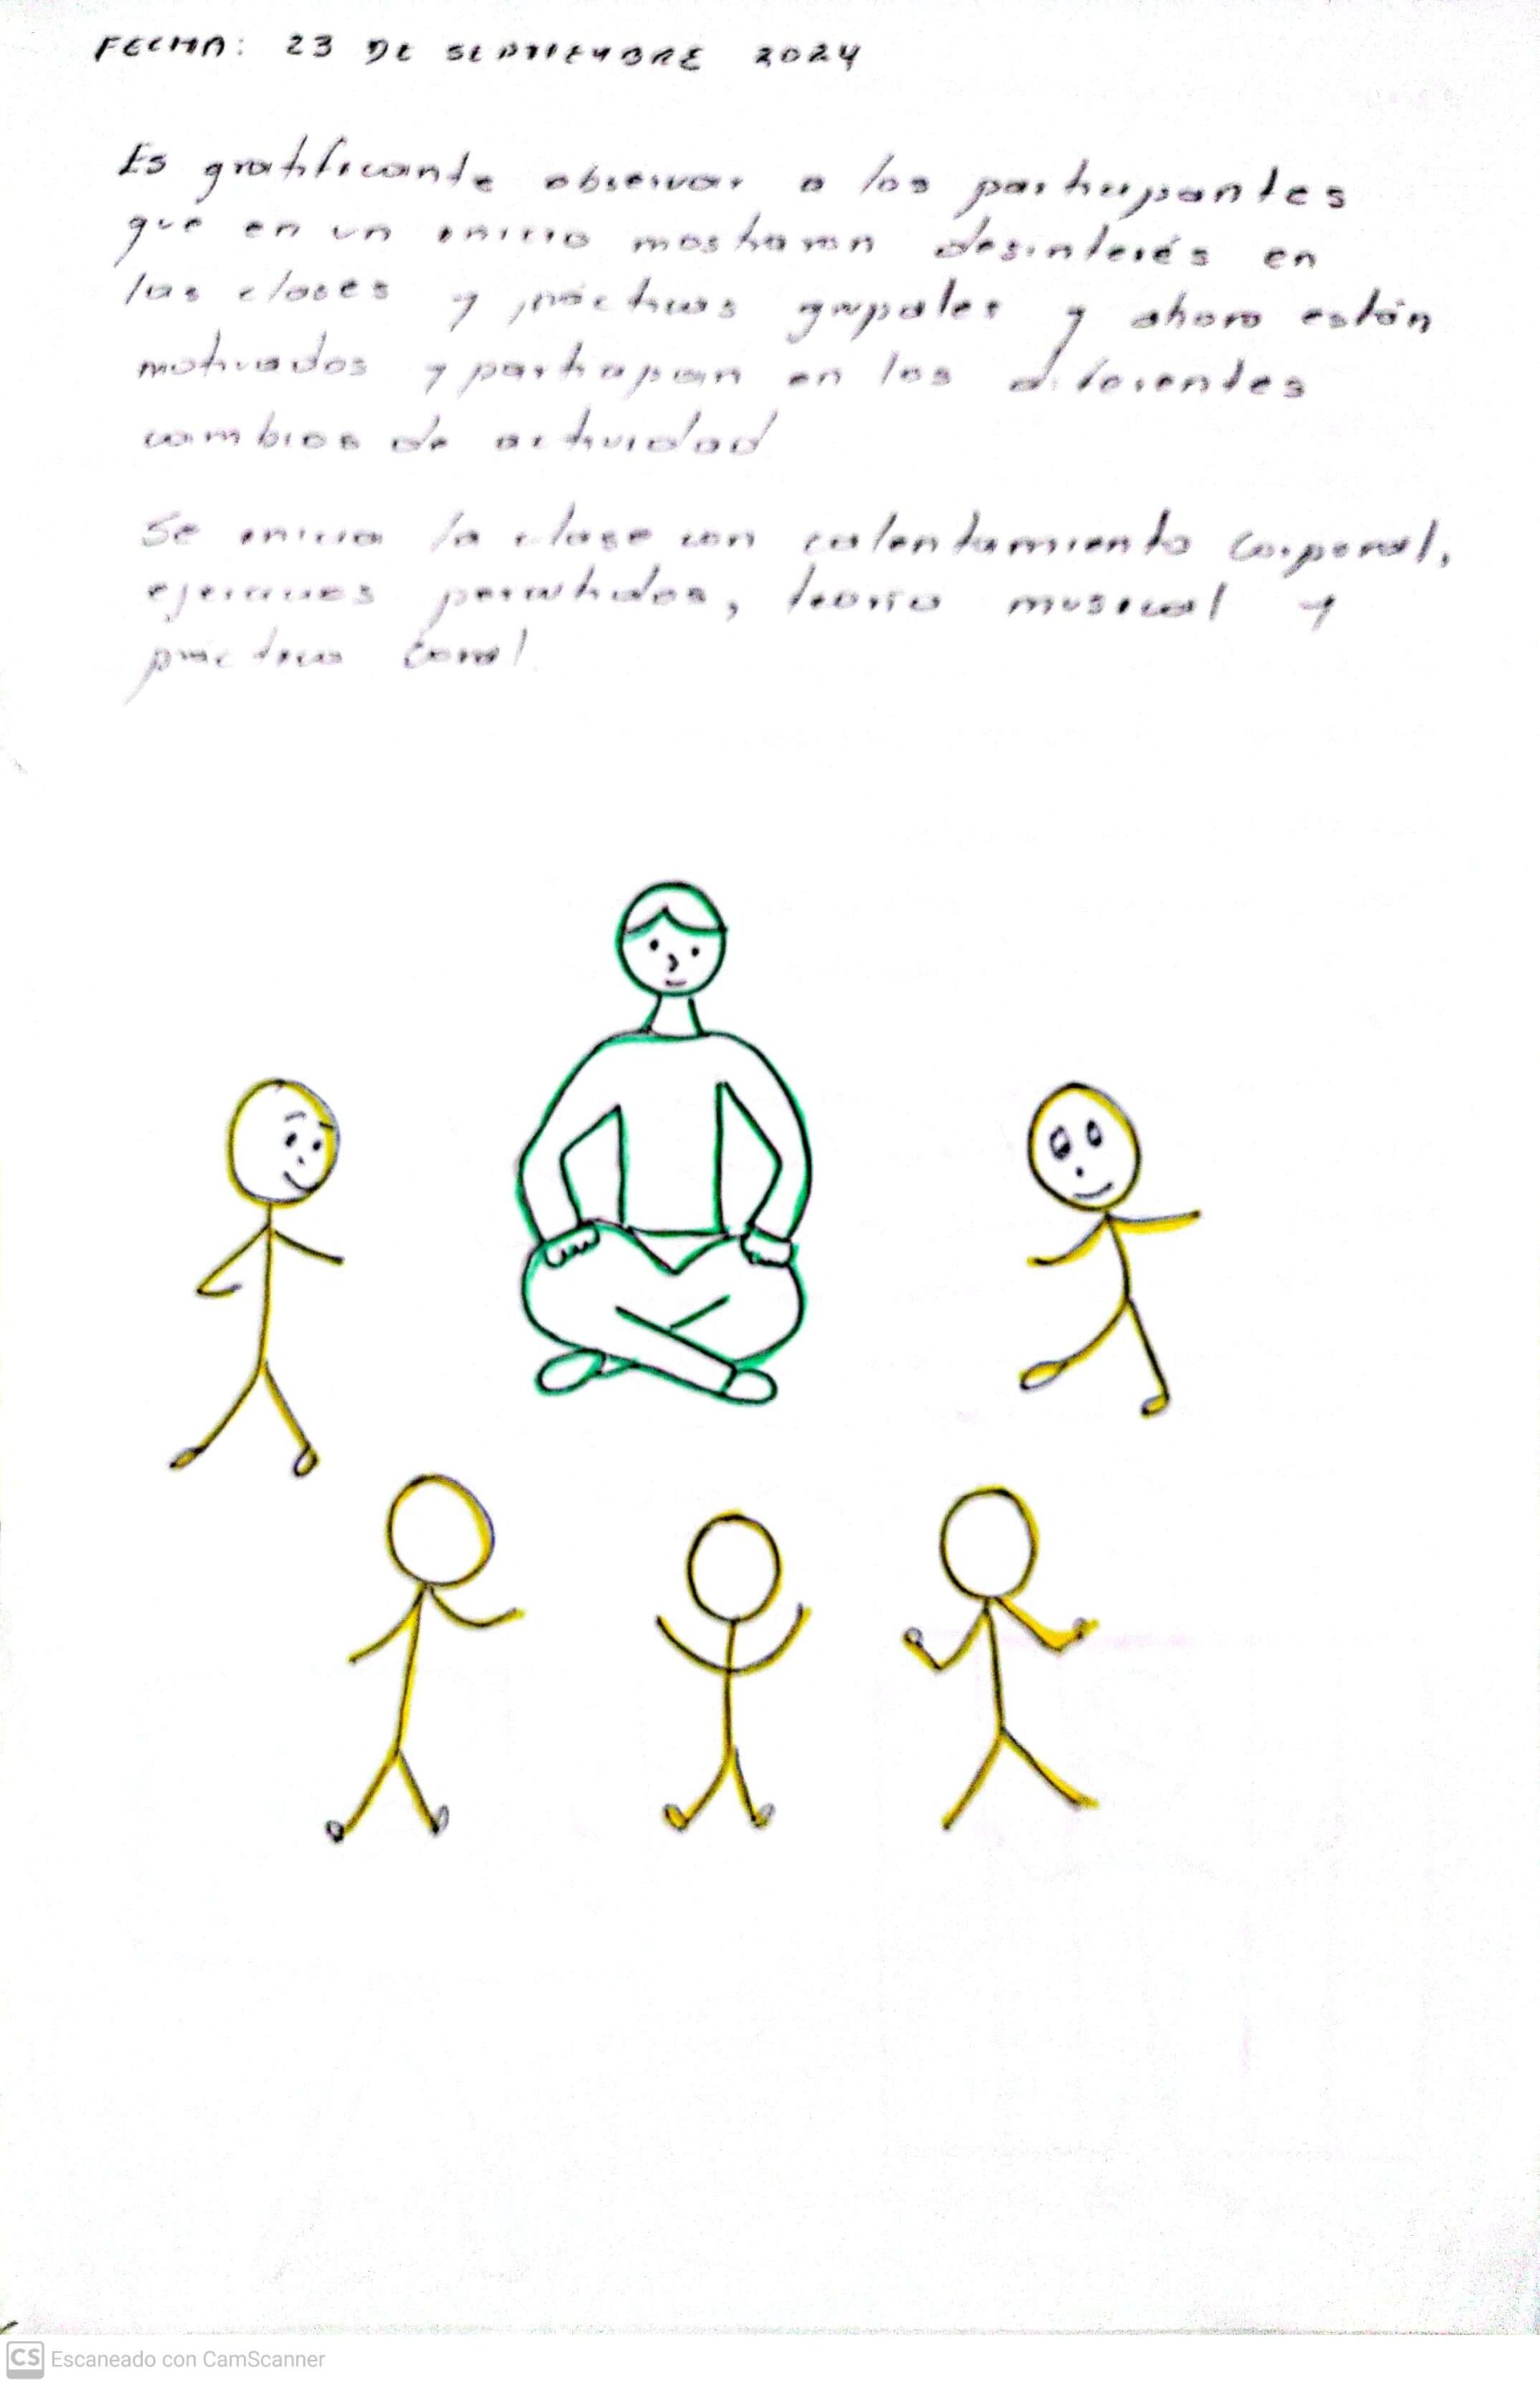 FECHA: 23 DE SEPTIEMBRE 2024
Es gratificante observar a los participantes
que en un inicio mostraron desinterés en
las clases y prácticas grupales y ahora están
motivados y participan en los diferentes
cambios de actividad
Se inicia la clase con calentamiento corporal,
ejercicios percutidos, teoría musical y
práctica coral
CS Escaneado con CamScanner